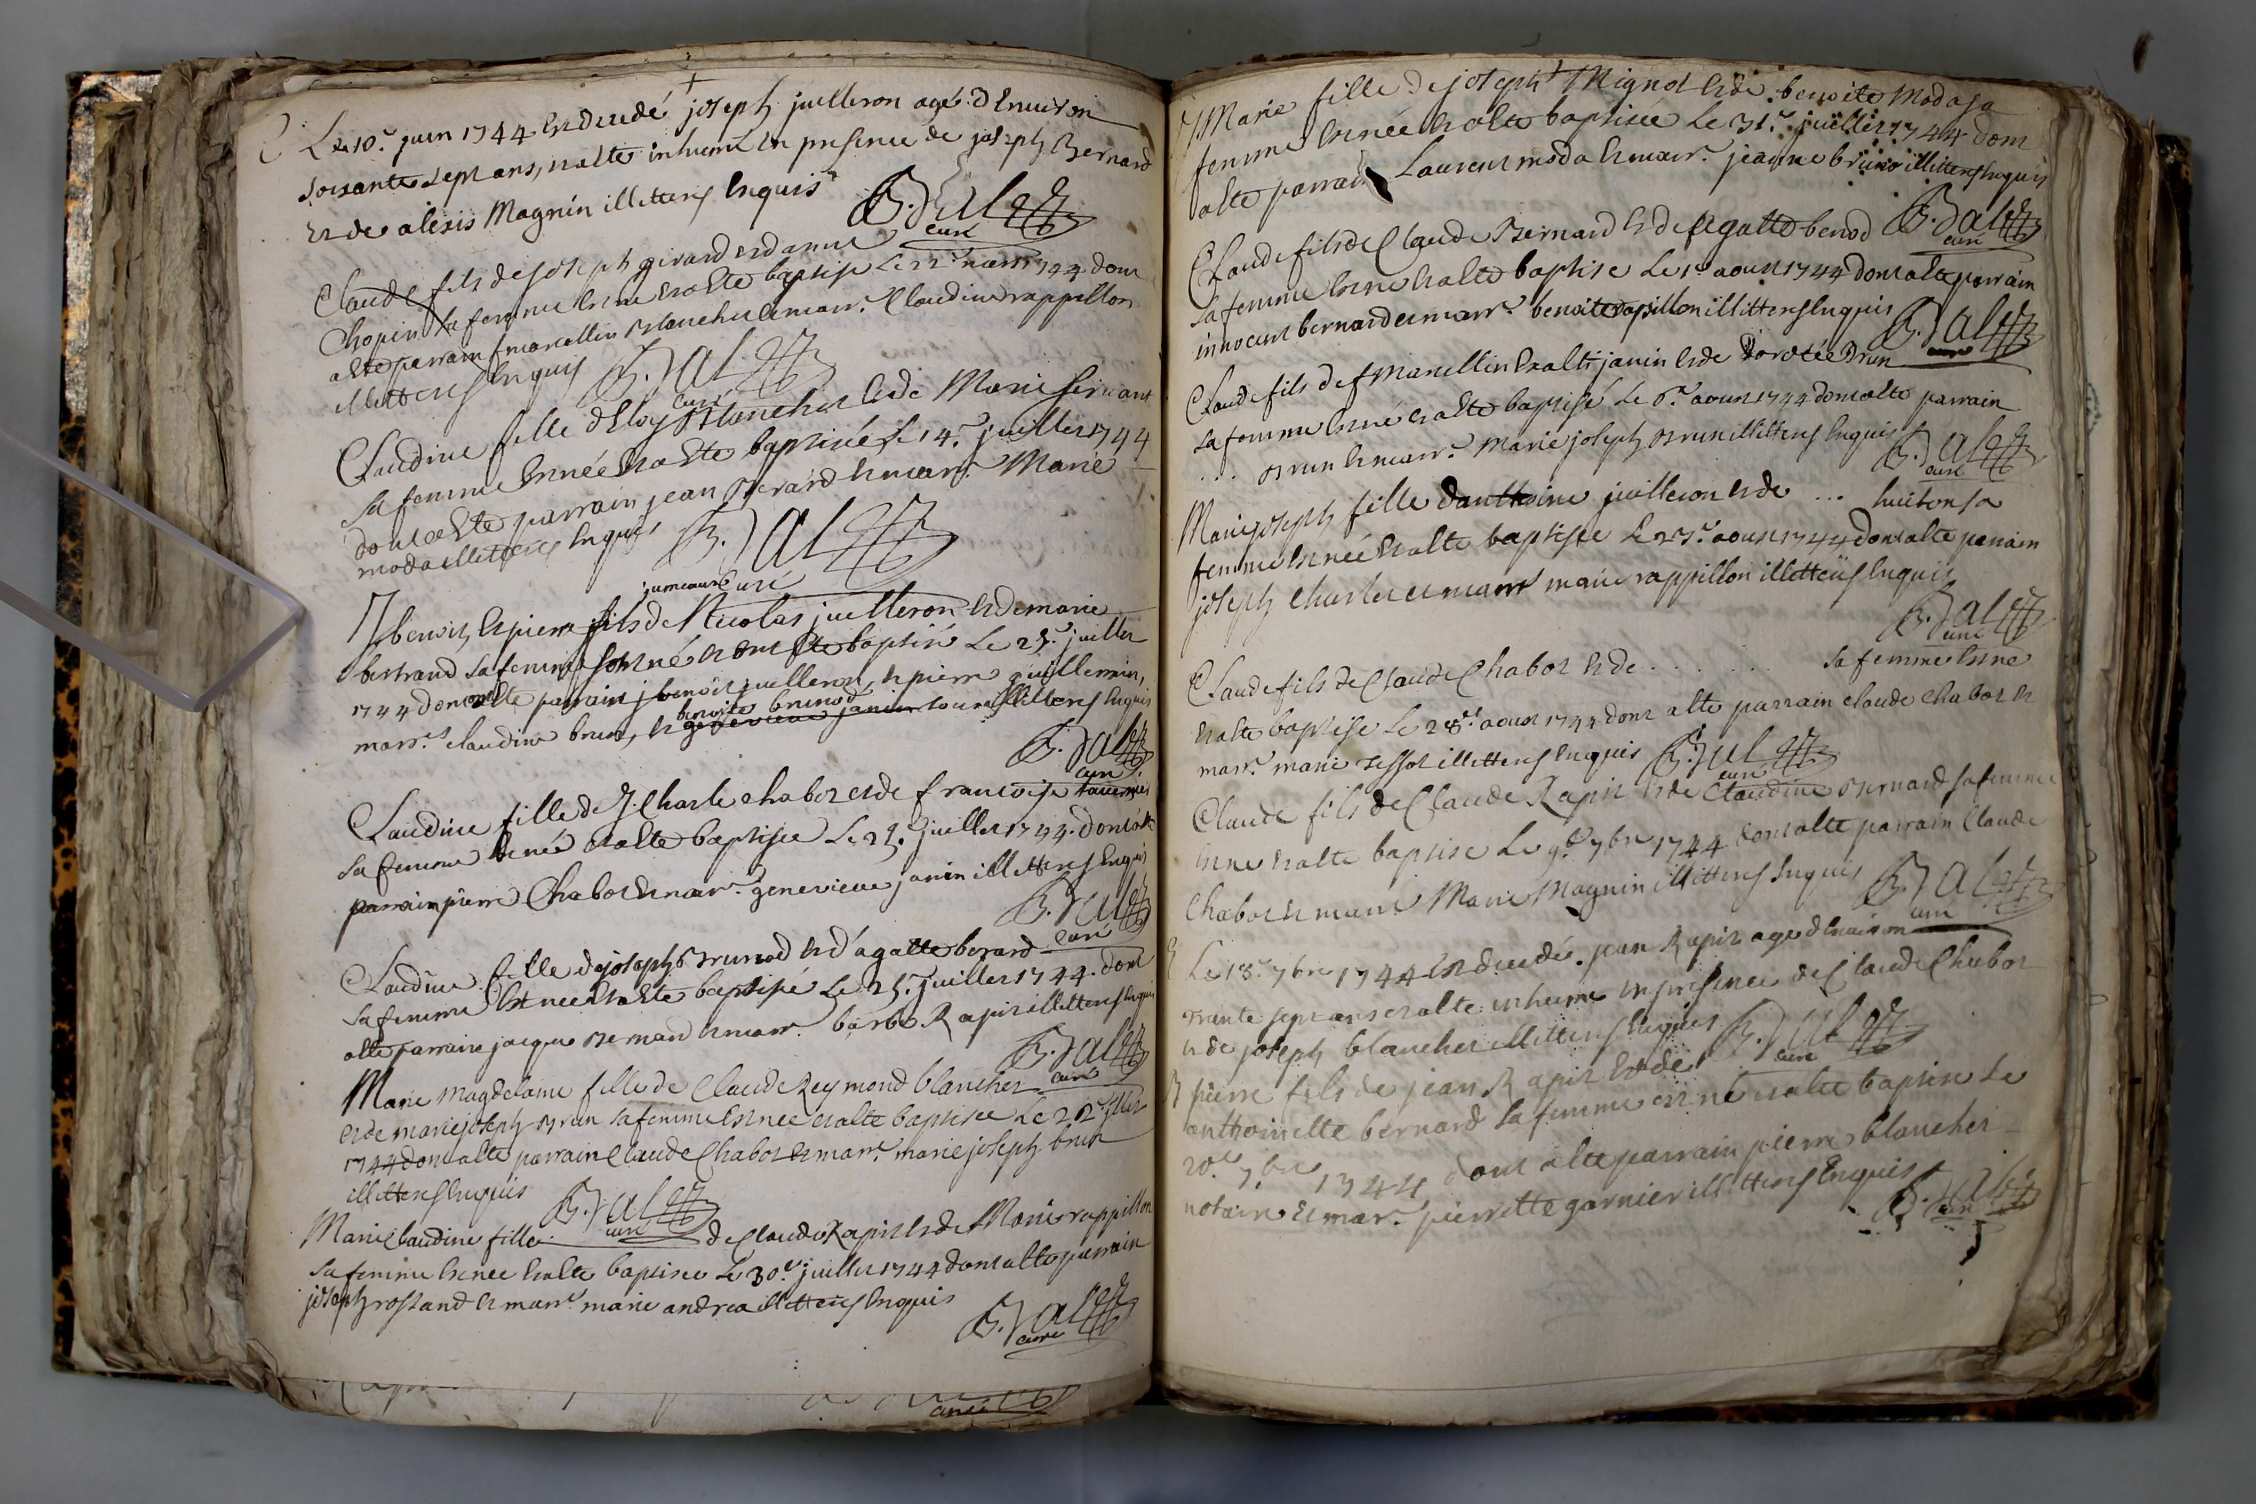 Le 10.e juin 1744 est decedé joseph juilleron agé d'Environ
soixante sept ans, et a été inhumé en presence de joseph Bernard
et de alexis Magnin illitterés Enquis
curé
Claude fils de joseph girard et d'anne
Chopin sa femme est né et a été baptisé Le 22.e 1744 dont
a été parrain marcellin Blanchet et marr.e Claudine rappillon
illitterés Enquis
curé
Claudine fille d'Eloy Blanchet et de Marie
sa femme est née et a été baptisée Le 14.e juillet 1744
dont a été parrain jean Berard et marr.e Marie
moda illitterés Enquis
curé
jumeaux
benoit, et pierre fils de Nicolas juilleron et de marie
bertrand sa femme sont né et ont été baptisé Le 25.e juillet
1744 dont ont été parrain j benoit juilleron, et pierre guillemin,
marr.es claudine brun, et benoite brunod tous illitterés Enquis
curé
Claudine fille de J. Charle chabot et de francoise
sa femme est née et a été baptisée Le 25.e juillet 1744. dont a été
parrain pierre Chabot et marr.e genevieve janin illitterés Enquis
curé
Claudine fille de joseph Brunod et d'agatte berard
sa femme est née et a été baptisé Le 25.e juillet 1744. dont
a été parrain jacque Bernard et marr.e barbe Rapit illitterés Enquis
curé
Marie magdelaine fille de Claude Reymond blanchet
et de marie joseph Brun sa femme est née et a été baptisée Le 22.e jllet
1744 dont a été parrain Claude Chabot et marr.e marie joseph brun
illitterés Enquis
curé
Marie Claudine fille de Claude Rapit et de Marie rappillon
sa femme est née et a été baptisée Le 30.e juillet 1744 dont a été parrain
joseph rostand et marr.e marie andrea illitterés Enquis
curé
Marie fille de joseph Mignot et de benoite Moda sa
femme est née et a été baptisée Le 31.e juillet 1744 dont
a été parrain Laurent moda et marr.e jeanne bruno illitterés Enquis
curé
Claude fils de Claude Bernard et de agatte benod
sa femme est né et a été baptisé Le 1.er aoust 1744 dont a été parrain
innocent bernard et marr.e benoite rapillon illitterés Enquis
curé
Claude fils de marcellin janin et de Dorotée Brun
sa femme est né et a été baptisé Le 6.e aoust 1744 dont a été parrain
... Brun et marr.e Marie joseph Brun illitterés Enquis
curé
Marie joseph fille d'anthoine juilleron et de ... huiton sa
femme est née et a été baptisée Le 25.e aoust 1744 dont a été parrain
joseph charles et marr.e marie rappillon illitterés Enquis
curé
Claude fils de Claude Chabot et de . . . . . . sa femme est né
et a été baptisé Le 28.e aoust 1744 dont a été parrain claude chabot et
marr.e marie illitterés Enquis
curé
Claude fils de Claude Rapit et de Claudine Bernard sa femme
est né et a été baptisé Le 9.e 7bre 1744 dont a été parrain Claude
Chabot et marr.e Marie Magnin illitterés Enquis
curé
Le 18.e 7bre 1744 est decedé jean Rapit agé d'Environ
trente sept ans et a été inhumé en presence de Claude Chabot
et de joseph blanchet illitterés Enquis
curé
pierre fils de jean Rapit et de
anthoinette bernard sa femme est né et a été baptisé Le
20.e 7.bre 1744 dont a été parrain pierre blanchet
notaire et mar.e pierrette garnier illitterés Enquis
curé